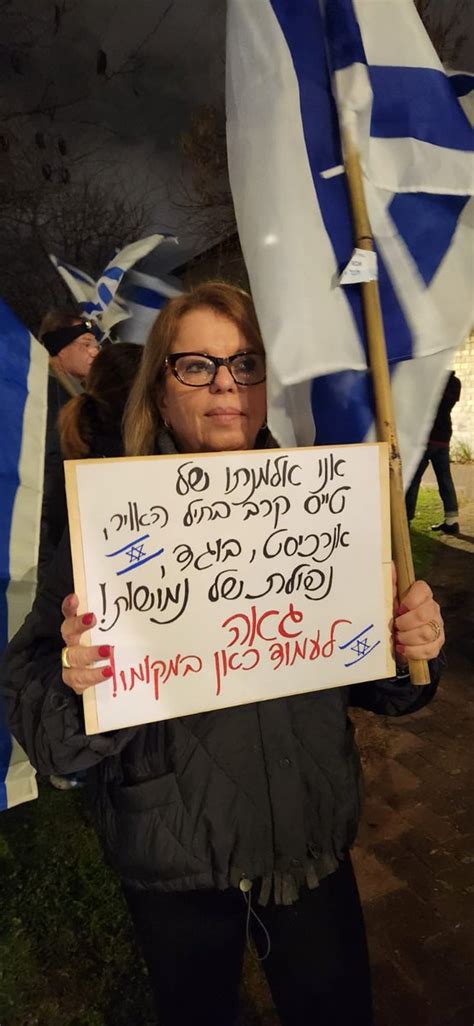 אני אלמנתו של
טייס קרב בחיל האוויר,
אנרכיסט, בוגד,
נפולת של נמושות!
גאה
לעמוד כאן במקומו!